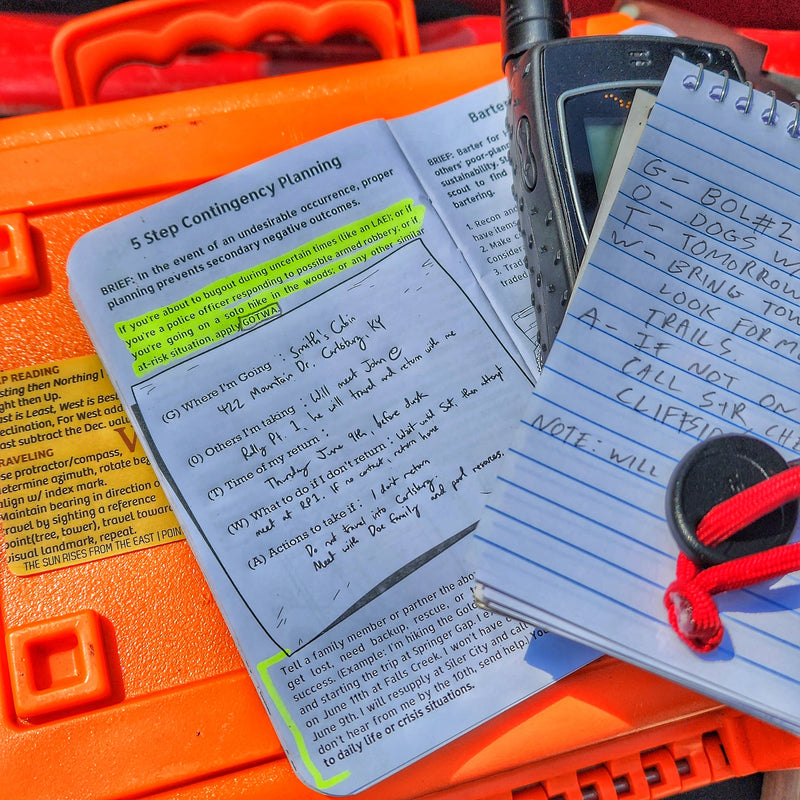 5 Step Contingency Planning
BRIEF: In the event of an undesirable occurrence, proper
planning prevents secondary negative outcomes.
If you're about to bugout during uncertain times (like an LAE); or if
you're a police officer responding to possible armed robbery; or if
you're going on a solo hike in the woods; or any other similar
at-risk situation, apply GOTWA.
(G) Where I'm Going : Smith's Cabin
422 Mountain Dr. Carlsburg KY
(O) Others I'm taking : Will meet John @
Rally Pt. 1, he will travel and return with me
(T) Time of my return :
Thursday June 9th, before dusk
(W) What to do if I don't return : Wait until Sat. then attempt
meet at RP1. If no contact, return home
(A) Actions to take if : I don't return
Do not travel into Carlsburg
Meet with Doe Family and pool resources.
Tell a family member or partner the abo
get lost, need backup, rescue, or
success. (Example: I'm hiking the Gold
and starting the trip at Springer Gap. I
on June 11th at Falls Creek. I won't have
June 9th. I will resupply at Siler City and call
don't hear from me by the 10th, send help. You
to daily life or crisis situations.
Barte
BRIEF: Barter for
others' poor-plan
sustainability. S
scout to find
bartering:
1. Recon an
have items
2. Make c
Consider
3. Trad
traded
G - BOL#2
O - DOGS W/
T - TOMORROW
W - BRING TOW
LOOK FOR ME
TRAILS.
A - IF NOT ON
CALL S+R, CHE
CLIFFSID
NOTE: WILL
P READING
sting then Northing
ght then Up.
ast is Least, West is Bes
eclination, For West add
ast subtract the Dec. valu
RAVELING
se protractor/compass,
etermine azimuth, rotate be
align w/ index mark.
Maintain bearing in direction o
ravel by sighting a reference
point(tree, tower), travel towar
visual landmark, repeat.
THE SUN RISES FROM THE EAST | POIN